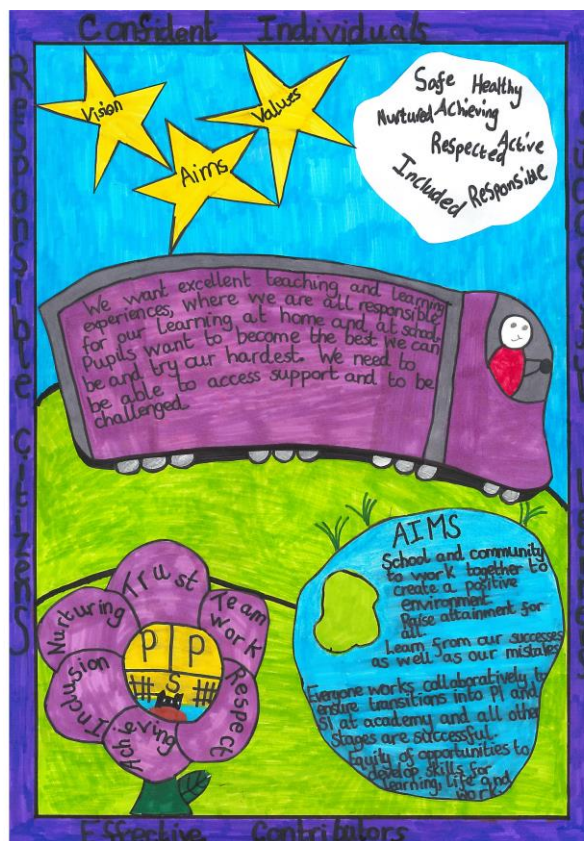 Confident Individuals
Responsible Citizens
Vision
Values
Aims
Safe Healthy
Nurtured Achieving
Respected Active
Included Responsible
We want excellent teaching and learning
experiences, where we are all responsible
for our learning at home and at school.
Pupils want to become the best we can
be and try our hardest. We need to
be able to access support and to be
challenged.
AIMS
School and community
to work together to
create a positive
environment.
Raise attainment for
all.
Learn from our successes
as well as our mistakes
Everyone works collaboratively to
ensure transitions into P1 and
S1 at academy and all other
stages are successful.
Equity of opportunities to
develop skills for
learning, life and
work
Trust
Team
work
Respect
Achieving
Inclusion
Nurturing
P P
S
Effective Contributors